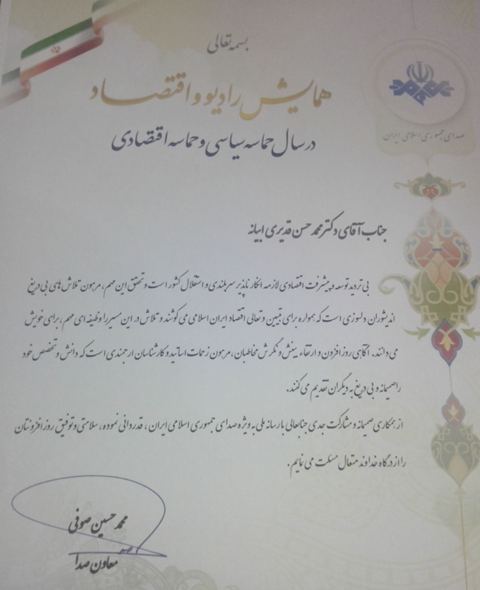 بسمه تعالی
همایش رادیو و اقتصاد
در سال حماسه سیاسی و حماسه اقتصادی
صدای جمهوری اسلامی ایران
جناب آقای دکتر محمد حسن قدیری ابیانه
بی تردید توسعه و پیشرفت اقتصادی لازمه انکار ناپذیر سربلندی و استقلال کشور است و تحقق این مهم، مرهون تلاش های بی دریغ
اندیشوران دلسوزی است که همواره برای تبیین و تعالی اقتصاد ایران اسلامی می کوشند و تلاش در این مسیر را وظیفه ای مهم، برای خویش
می دانند. آگاهی روز افزون و ارتقاء بینش و نگرش مخاطبان، مرهون زحمات اساتید و کارشناسان ارجمندی است که دانش و تخصص خود
را صمیمانه و بی دریغ به دیگران تقدیم می کنند.
از همکاری صمیمانه و مشارکت جدی جنابعالی با رسانه ملی به ویژه صدای جمهوری اسلامی ایران، قدردانی نموده، سلامتی و توفیق روز افزونتان
را از درگاه خداوند متعال مسئلت می نمایم.
محمد حسین صوفی
معاون صدا